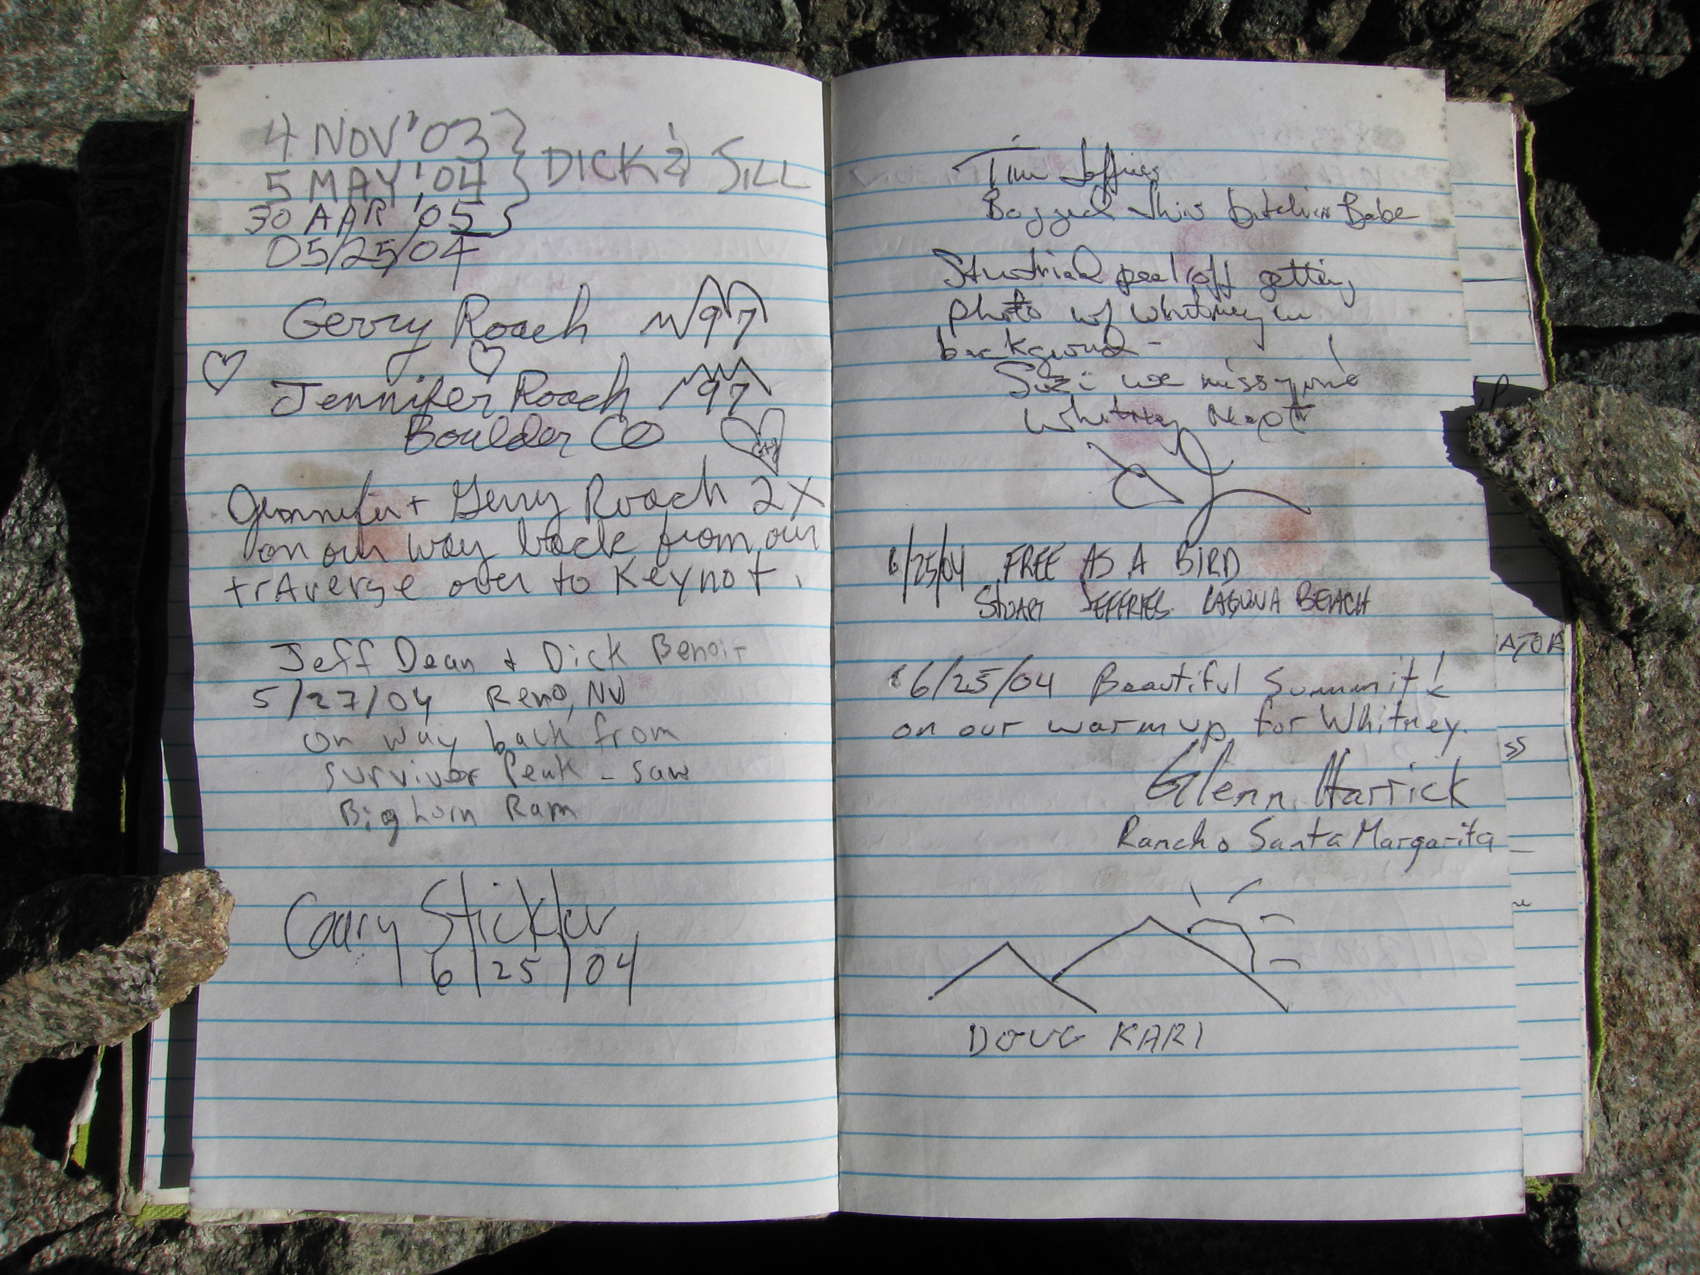 4 NOV '03
5 MAY '04 } DICK & SILL
30 APR '05
05/25/04
Gerry Roach 97
Jennifer Roach 97
Boulder CO
Jennifer + Gerry Roach 2X
on our way back from our
trAverse over to Keynot.
Jeff Dean + Dick Benoit
5/27/04 Reno, NV
on way back from
survivor Peak - saw
Big horn Ram
Gary Stickler
6/25/04
Tim Jeffries
Bagged this bitchin Babe
peel off getting
photo w/ Whitney in
background -
Suzi we miss you!
Whitney Next
6/25/04 FREE AS A BIRD
STUART JEFFRIES LAGUNA BEACH
6/25/04 Beautiful Summit!
on our warmup for Whitney.
Glenn
Rancho Santa Margarita
DOUG KARI
ATOR
SS